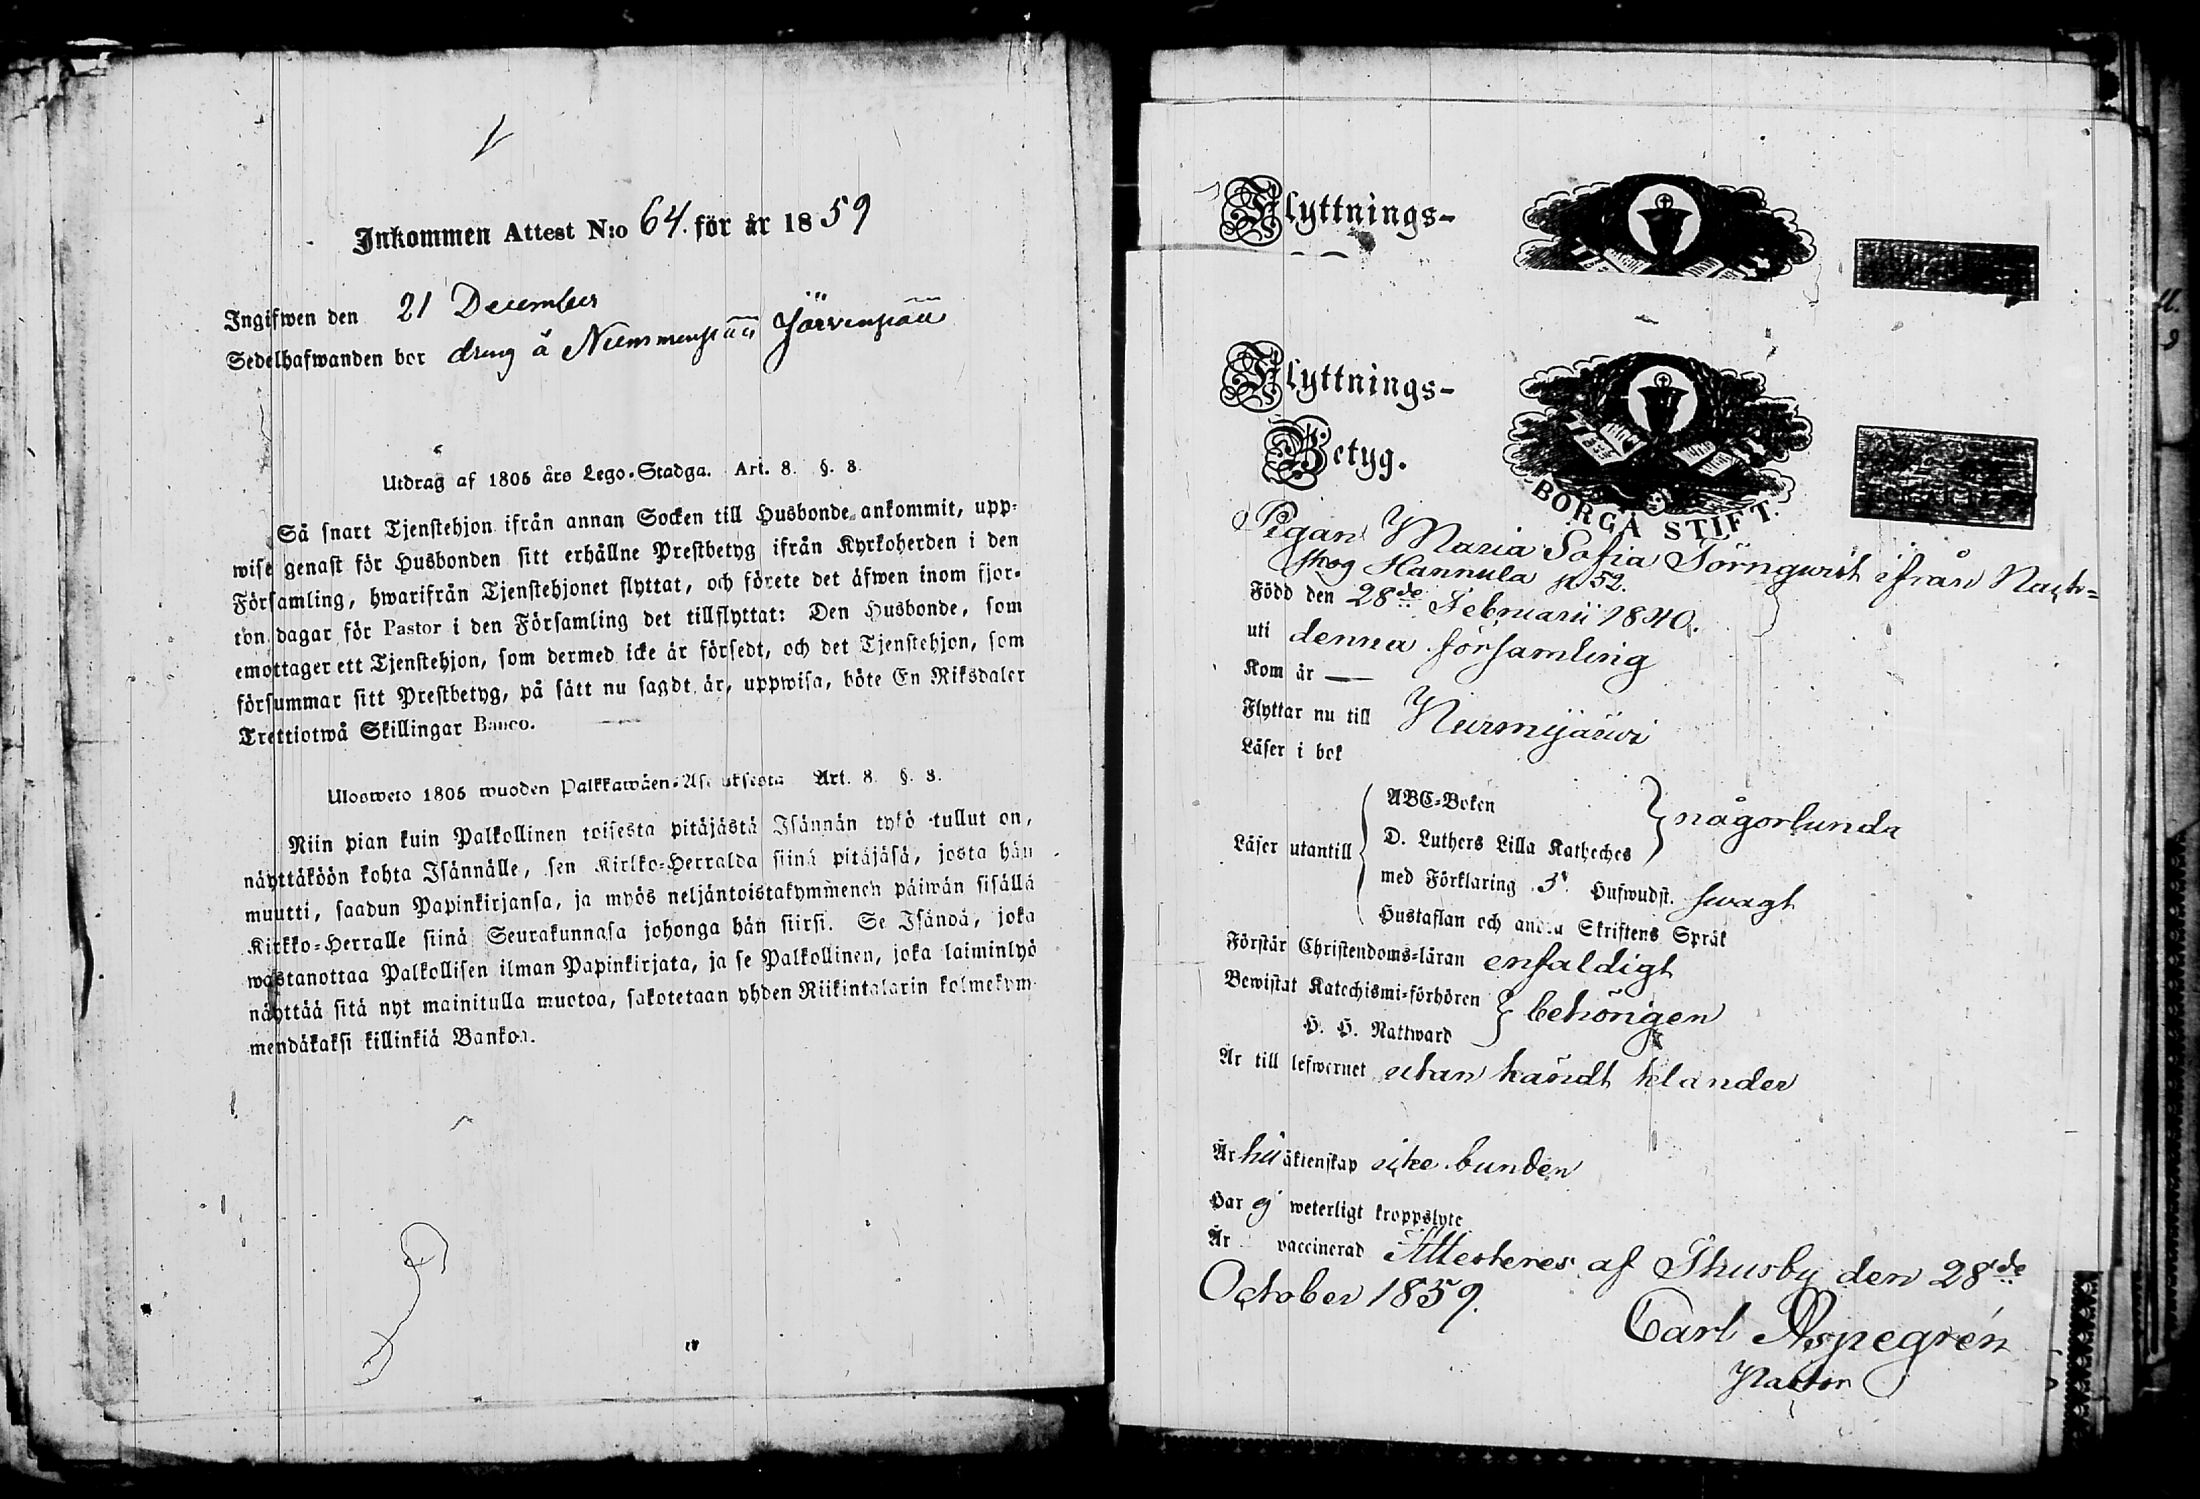 Inkommen Attest N:o 64. för år 1859
Ingifwen den 21 December
Sedelhafwanden bor dreng å Nummenpää Järvenpää
Utdrag af 1805 års Lego-Stadga. Art. 8. §. 8.
Så snart Tjenstehjon ifrån annan Socken till Husbonde ankommit, upp-
wise genast för Husbonden sitt erhållne Prestbetyg ifrån Kyrkoherden i den
Församling, hwarifrån Tjenstehjonet flyttat, och förete det äfwen inom fjor-
ton dagar för Pastor i den Församling det tillflyttat: Den Husbonde, som
emottager ett Tjenstehjon, som dermed icke är försedt, och det Tjenstehjon, som
försummar sitt Prestbetyg, på sätt nu sagdt är, uppwisa, böte En Riksdaler
Trettiotwå Skillingar Banco.
Ulosweto 1805 wuoden Palkkawäen-Asetuksesta Art. 8. §. 8.
Niin pian kuin Palkollinen toisesta pitäjästä Isännän tykö tullut on,
näyttäköön kohta Isännälle, sen Kirkko-Herralda siinä pitäjäsä, josta hän
muutti, saadun Papinkirjansa, ja myös neljäntoistakymmenen päiwän sisällä
Kirkko-Herralle siinä Seurakunnasa johonga hän siirsi. Se Isändä, joka
wastanottaa Palkollisen ilman Papinkirjata, ja se Palkollinen, joka laiminlyö
näyttää sitä nyt mainitulla muotoa, sakotetaan yhden Riikintalarin kolmekym-
mendäkaksi killinkiä Bankoa.
Flyttnings-
Flyttnings-
Betyg.
BORGÅ STIFT.
Pigan Maria Sofia Törnqwist ifrån Nack-
skog Hannula p 52.
Född den 28de Februarii 1840.
uti denna församling
Kom år —
Flyttar nu till Nurmijärwi
Läser i bok
Läser utantill
ABC-Boken
D. Luthers Lilla Katheches } någorlunda
med Förklaring 5 Hufwudst. swagt
Hustaflan och andra Skriftens Språk
Förstår Christendoms-läran enfaldigt
Bewistat Katechismi-förhören } behörigen
H. H. Nattward
Är till lefwernet utan kändt klander
Är till äktenskap icke bunden
Har ej weterligt kroppslyte
Är vaccinerad Attesteres af Thusby den 28de
October 1859.
Carl Aspegrén
Pastor